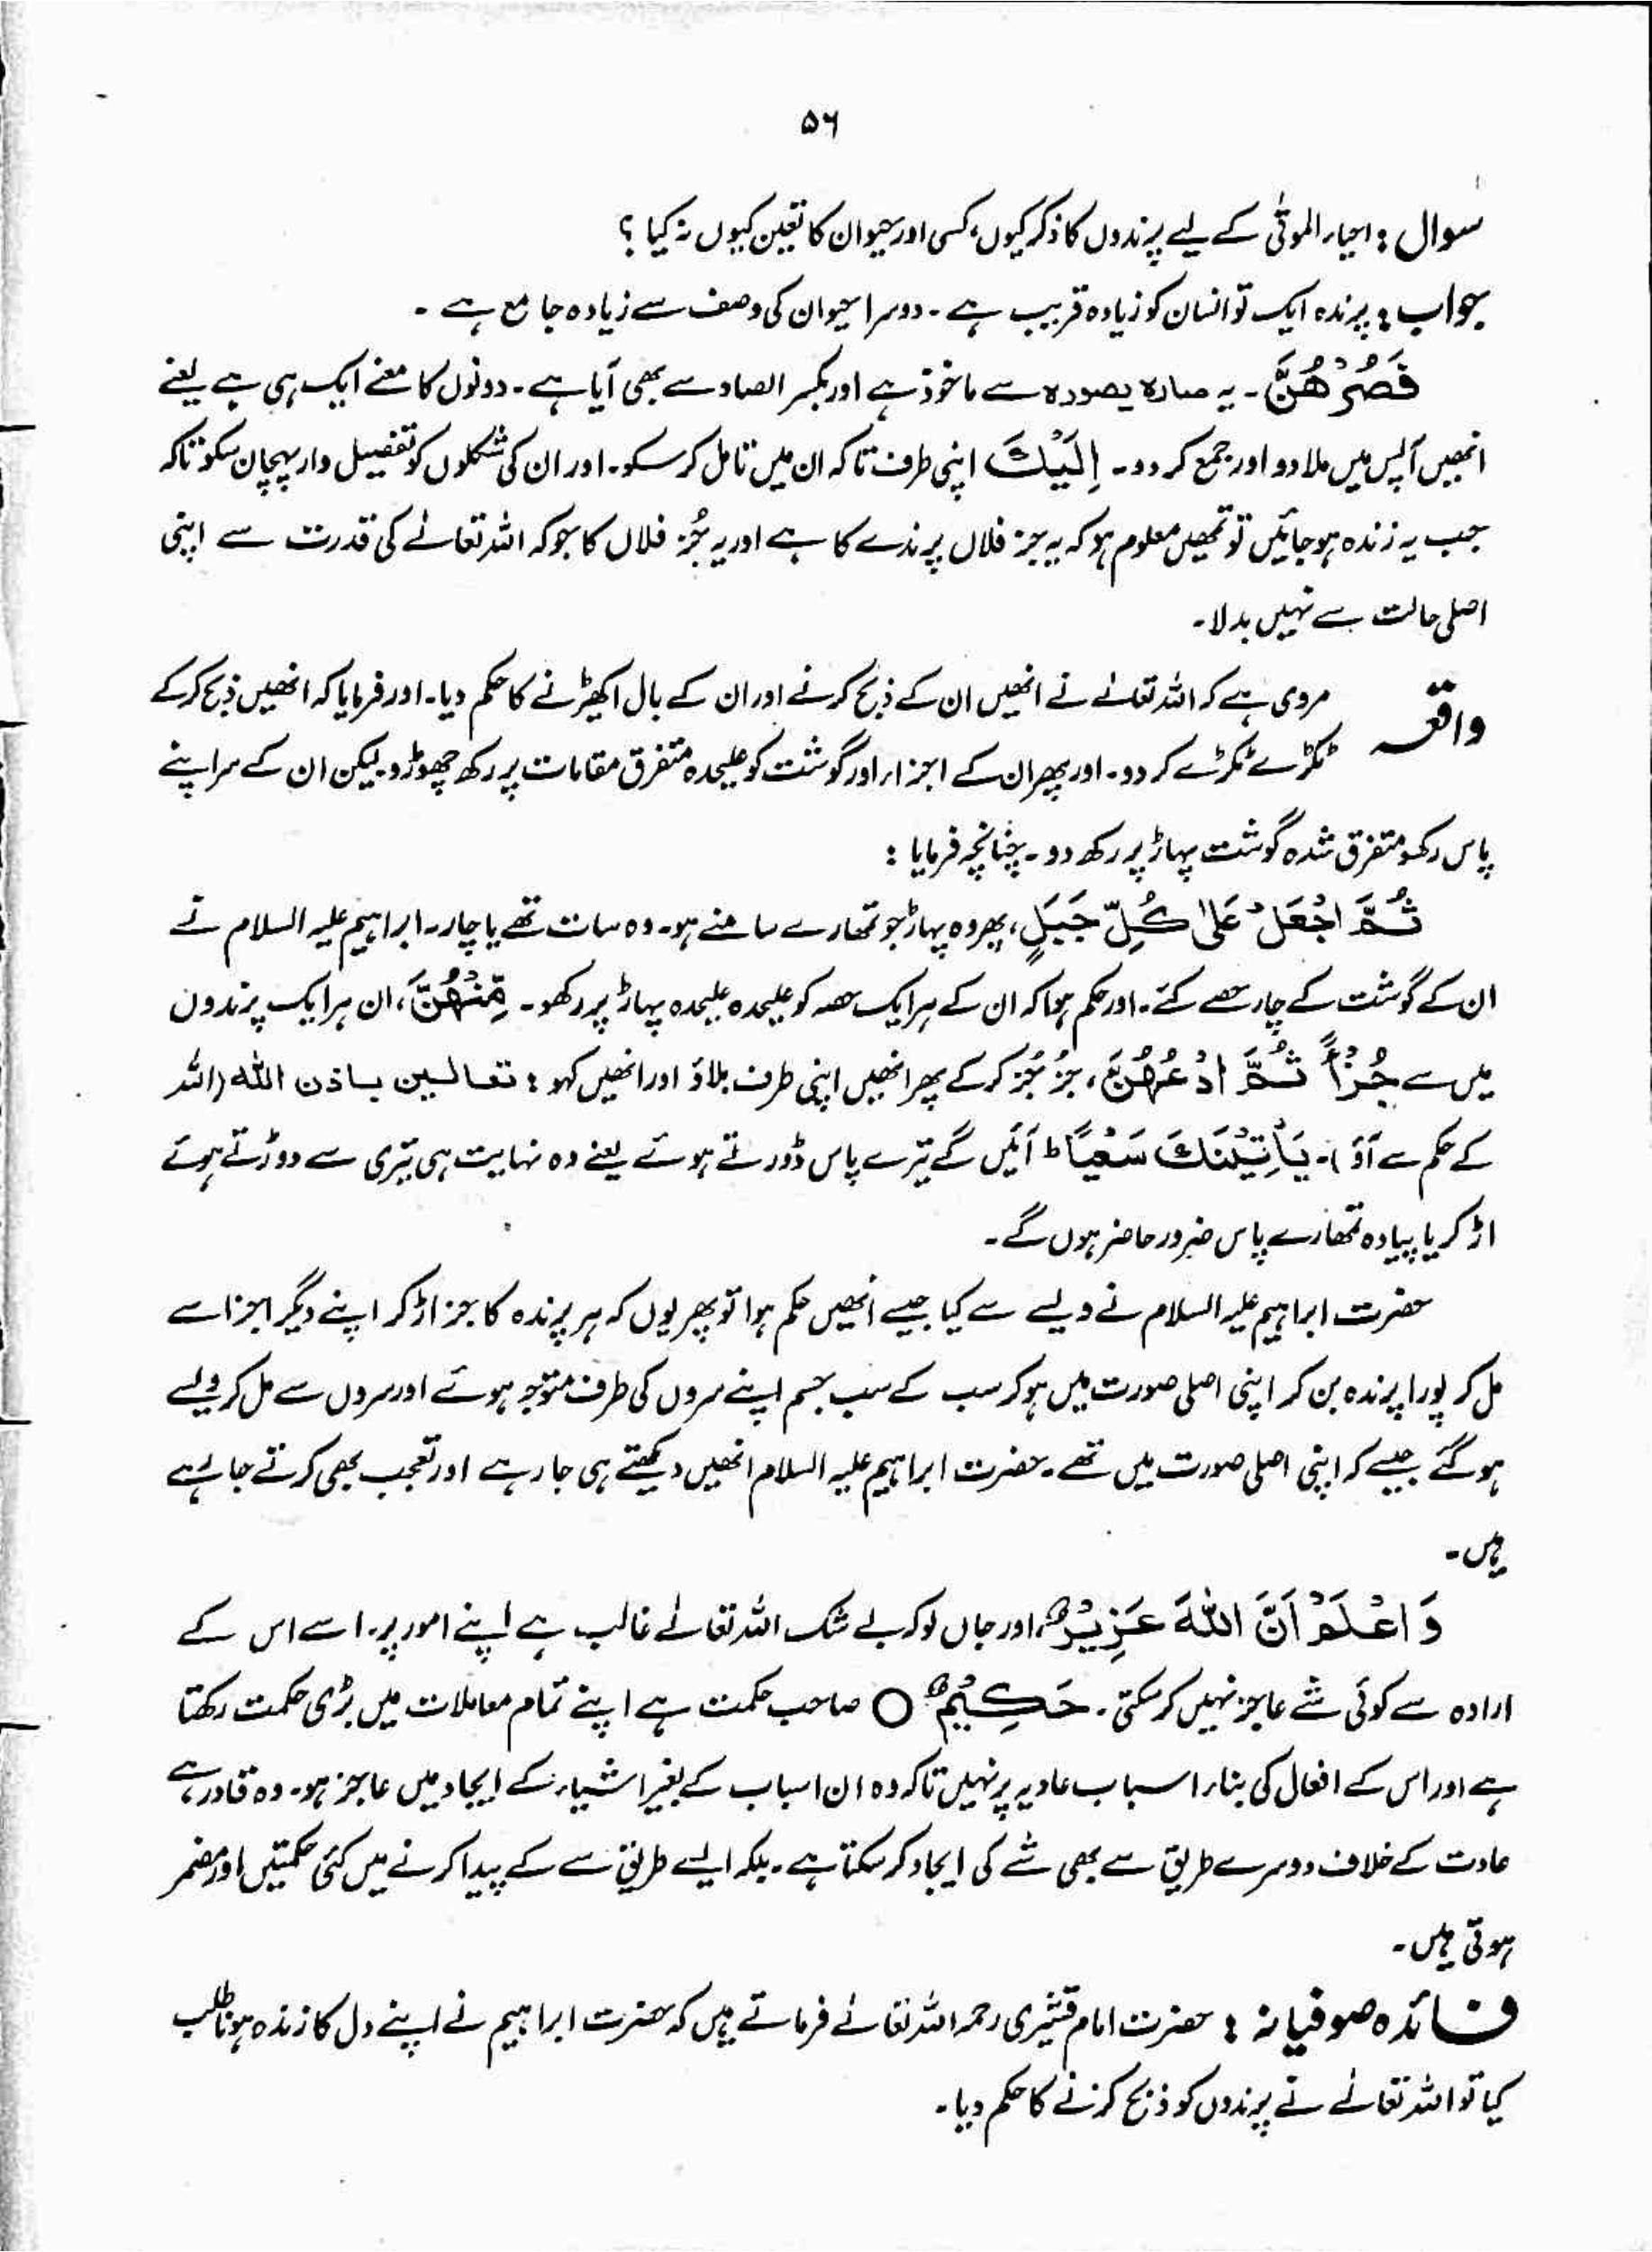 ۵۶
سوال : احیاء الموتٰی کے لیے پرندوں کا ذکر کیوں، کسی اور حیوان کا تعین کیوں نہ کیا ؟
جواب : پرندہ ایک تو انسان کو زیادہ قریب ہے ۔ دوسرا حیوان کی وصف سے زیادہ جامع ہے ۔
فَصُرْهُنَّ ۔ یہ صارہ یصورہ سے ماخوذ ہے اور بکسر الصاد سے بھی آیا ہے ۔ دونوں کا معنے ایک ہی ہے یعنے
انھیں آپس میں ملا دو اور جمع کر دو ۔ اِلَيْكَ اپنی طرف تاکہ ان میں تامل کر سکو ۔ اور ان کی شکلوں کو تفصیل وار پہچان سکو تاکہ
جب یہ زندہ ہو جائیں تو تمھیں معلوم ہو کہ یہ جز فلاں پرندے کا ہے اور یہ جُز فلاں کا جو کہ اللہ تعالےٰ کی قدرت سے اپنی
اصلی حالت سے نہیں بدلا ۔
واقعہ مروی ہے کہ اللہ تعالےٰ نے انھیں ان کے ذبح کرنے اور ان کے بال اکھیڑنے کا حکم دیا ۔ اور فرمایا کہ انھیں ذبح کر کے
ٹکڑے ٹکڑے کر دو ۔ اور پھر ان کے اجزاء اور گوشت کو علیحدہ متفرق مقامات پر رکھ چھوڑو لیکن ان کے سر اپنے
پاس رکھو متفرق شدہ گوشت پہاڑ پر رکھ دو ۔ چنانچہ فرمایا :
ثُمَّ اجْعَلْ عَلٰى كُلِّ جَبَلٍ ، پھر وہ پہاڑ جو تمھارے سامنے ہو ۔ وہ سات تھے یا چار ۔ ابراہیم علیہ السلام نے
ان کے گوشت کے چار حصے کئے ۔ اور حکم ہوا کہ ان کے ہر ایک حصہ کو علیحدہ علیحدہ پہاڑ پر رکھو ۔ مِّنْهُنَّ ، ان ہر ایک پرندوں
میں سے جُزْءًا ثُمَّ ادْعُهُنَّ ، جُز جُز کر کے پھر انھیں اپنی طرف بلاؤ اور انھیں کہو : تعالین باذن اللہ (اللہ
کے حکم سے آؤ) ۔ يَاْتِيْنَكَ سَعْيًا ط آئیں گے تیرے پاس دوڑتے ہوئے یعنے وہ نہایت ہی تیزی سے دوڑتے ہوئے
اڑ کر یا پیادہ تمھارے پاس ضرور حاضر ہوں گے ۔
حضرت ابراہیم علیہ السلام نے ویسے سے کیا جیسے انھیں حکم ہوا تو پھر یوں کہ ہر پرندہ کا جز اڑ کر اپنے دیگر اجزا سے
مل کر پورا پرندہ بن کر اپنی اصلی صورت میں ہو کر سب کے سب جسم اپنے سروں کی طرف متوجہ ہوئے اور سروں سے مل کر ویسے
ہو گئے جیسے کہ اپنی اصلی صورت میں تھے ۔ حضرت ابراہیم علیہ السلام انھیں دیکھتے ہی جا رہے اور تعجب بھی کرتے جا رہے
ہیں ۔
وَاعْلَمْ اَنَّ اللّٰهَ عَزِيْزٌ ، اور جان لو کہ بے شک اللہ تعالےٰ غالب ہے اپنے امور پر ۔ اسے اس کے
ارادہ سے کوئی شے عاجز نہیں کر سکتی ۔ حَكِيْمٌ ○ صاحب حکمت ہے اپنے تمام معاملات میں بڑی حکمت رکھتا
ہے اور اس کے افعال کی بناء اسباب عادیہ پر نہیں تاکہ وہ ان اسباب کے بغیر اشیاء کے ایجاد میں عاجز ہو ۔ وہ قادر ہے
عادت کے خلاف دوسرے طریق سے بھی شے کی ایجاد کر سکتا ہے ۔ بلکہ ایسے طریق سے کے پیدا کرنے میں کئی حکمتیں اور مضمر
ہوتی ہیں ۔
فائدہ صوفیانہ : حضرت امام قشیری رحمہ اللہ تعالےٰ فرماتے ہیں کہ حضرت ابراہیم نے اپنے دل کا زندہ ہونا طلب
کیا تو اللہ تعالےٰ نے پرندوں کو ذبح کرنے کا حکم دیا ۔